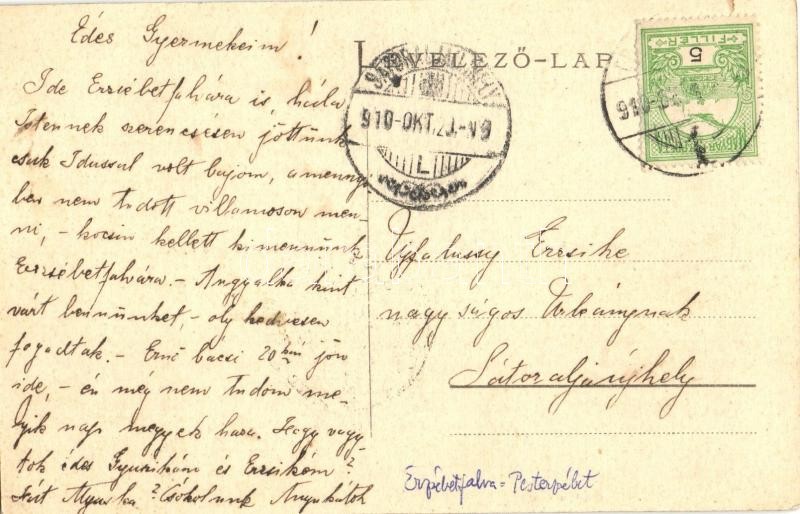 Édes Gyermekeim!
Ide Erzsébetfalvára is, hála
Istennek szerencsésen jöttünk
csak Idussal volt bajom, a mennyi
ben nem tudott villamoson men-
ni, - kocsin kellett kimennünk
Erzsébetfalvára. - Angyalka kint
várt bennünket, - oly kedvesen
fogadtak. - Ernő bácsi 20 kán jön
ide, - én még nem tudom me-
lyik nap megyek haza. Hogy vagy-
tok édes Gyurikám és Erzsikém?
Mit Nyuska? Csókolunk Anyukátok
LEVELEZŐ-LAP
5
FILLÉR
910-OKT.20
L
910-OK
Ujfalussy Erzsike
nagyságos Urleánynak
Sátoraljaújhely
Erzsébetfalva = Pesterzsébet